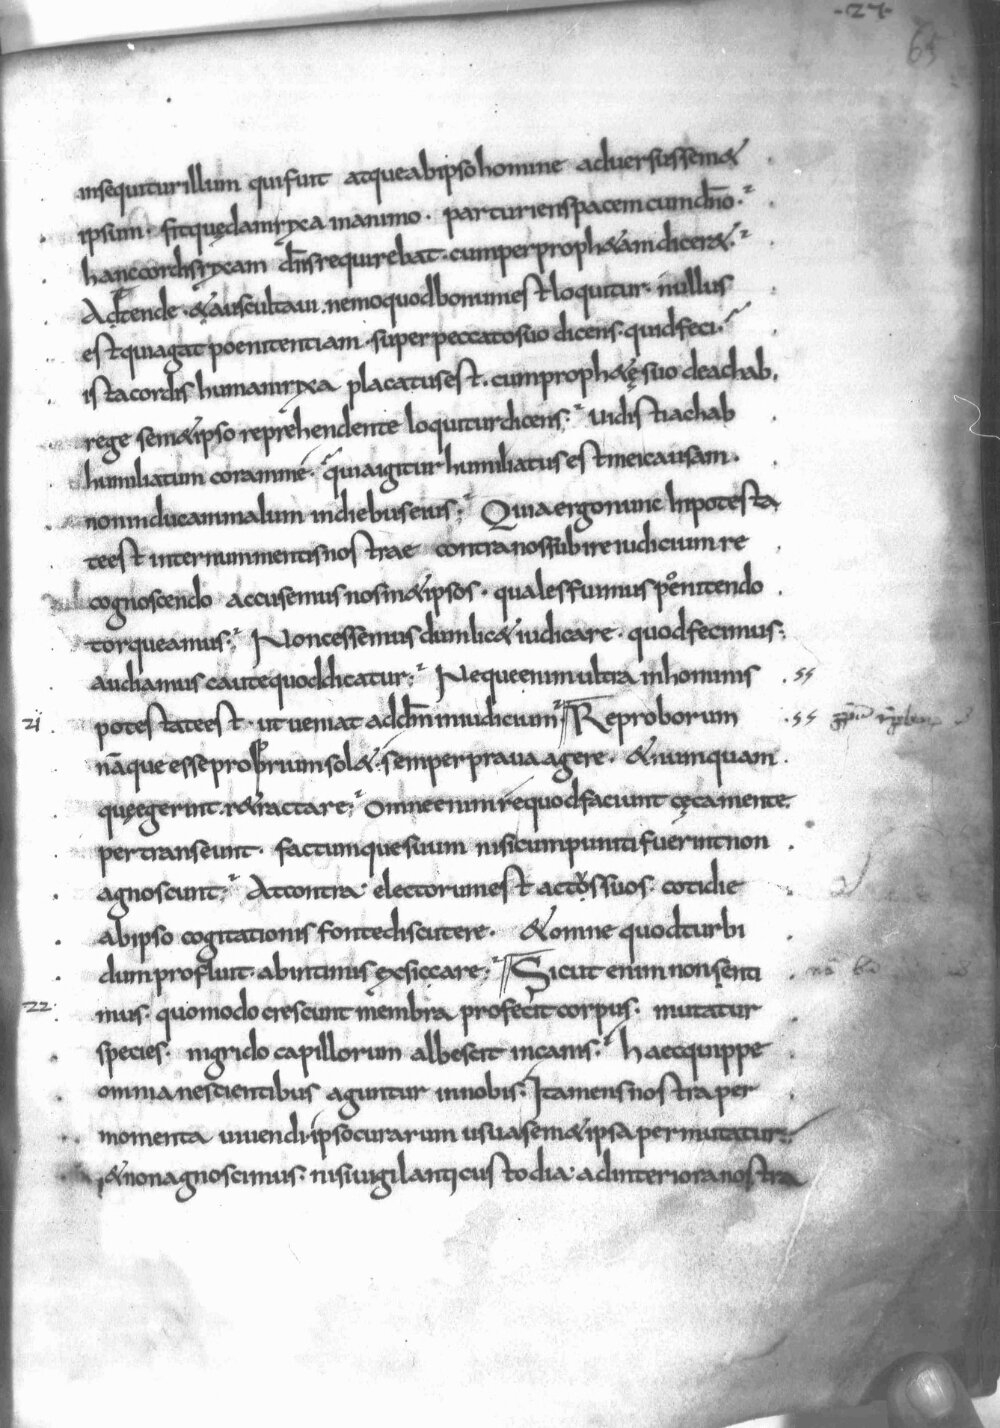 ·27·
65
insequitur illum qui fuit atque ab ipso homine adversus semet
ipsum· fit quędam ryxa in animo· parturiens pacem cum dn̄o·
hanc cordis ryxam dn̄s requirebat· cum per prophetam diceret·
Adtende & auscultaui· nemo quod bonum est loquitur· nullus
est qui agat poenitentiam· super peccato suo dicens· quid feci·
ista cordis humani ryxa placatus est· cum prophetę suo de achab
rege semetipso reprehendente loquitur dicens· uidisti achab
humiliatum coram me· quia igitur humiliatus est mei causam·
non inducam malum in diebus eius; Quia ergo nunc In potesta
te est internum mentis nostrae contra nos subire iudicium re
cognoscendo accusemus nosmet ipsos· quales fuimus poenitendo
torqueamus; Non cessemus dum licet iudicare· quod fecimus;
audiamus caute quod dicatur; Neque enim ultra in hominis
21 potestate est· ut ueniat ad dm̄ in iudicium; Reproborum
nāque esse proprium solet· semper praua agere· & numquam
quę egerint· retractare; Omne enim re quod faciunt cęca mente
pertranseunt· factumque suum nisi cum puniti fuerint non
agnoscunt; At contra electorum est actos suos cotidie
ab ipso cogitationis fonte discutere· & omne quod turbi
dum profluit· ab intimis exsiccare; Sicut enim non senti
22 mus· quomodo crescunt membra proficit corpus· mutatur
species· nigrido capillorum albescit in canis; haec quippe
omnia nescientibus aguntur in nobis· Ita mens nostra per
momenta uiuendi· ipso curarum usu a semetipsa permutatur·
& non agnoscimus· nisi uigilanti custodia· ad interiora nostra